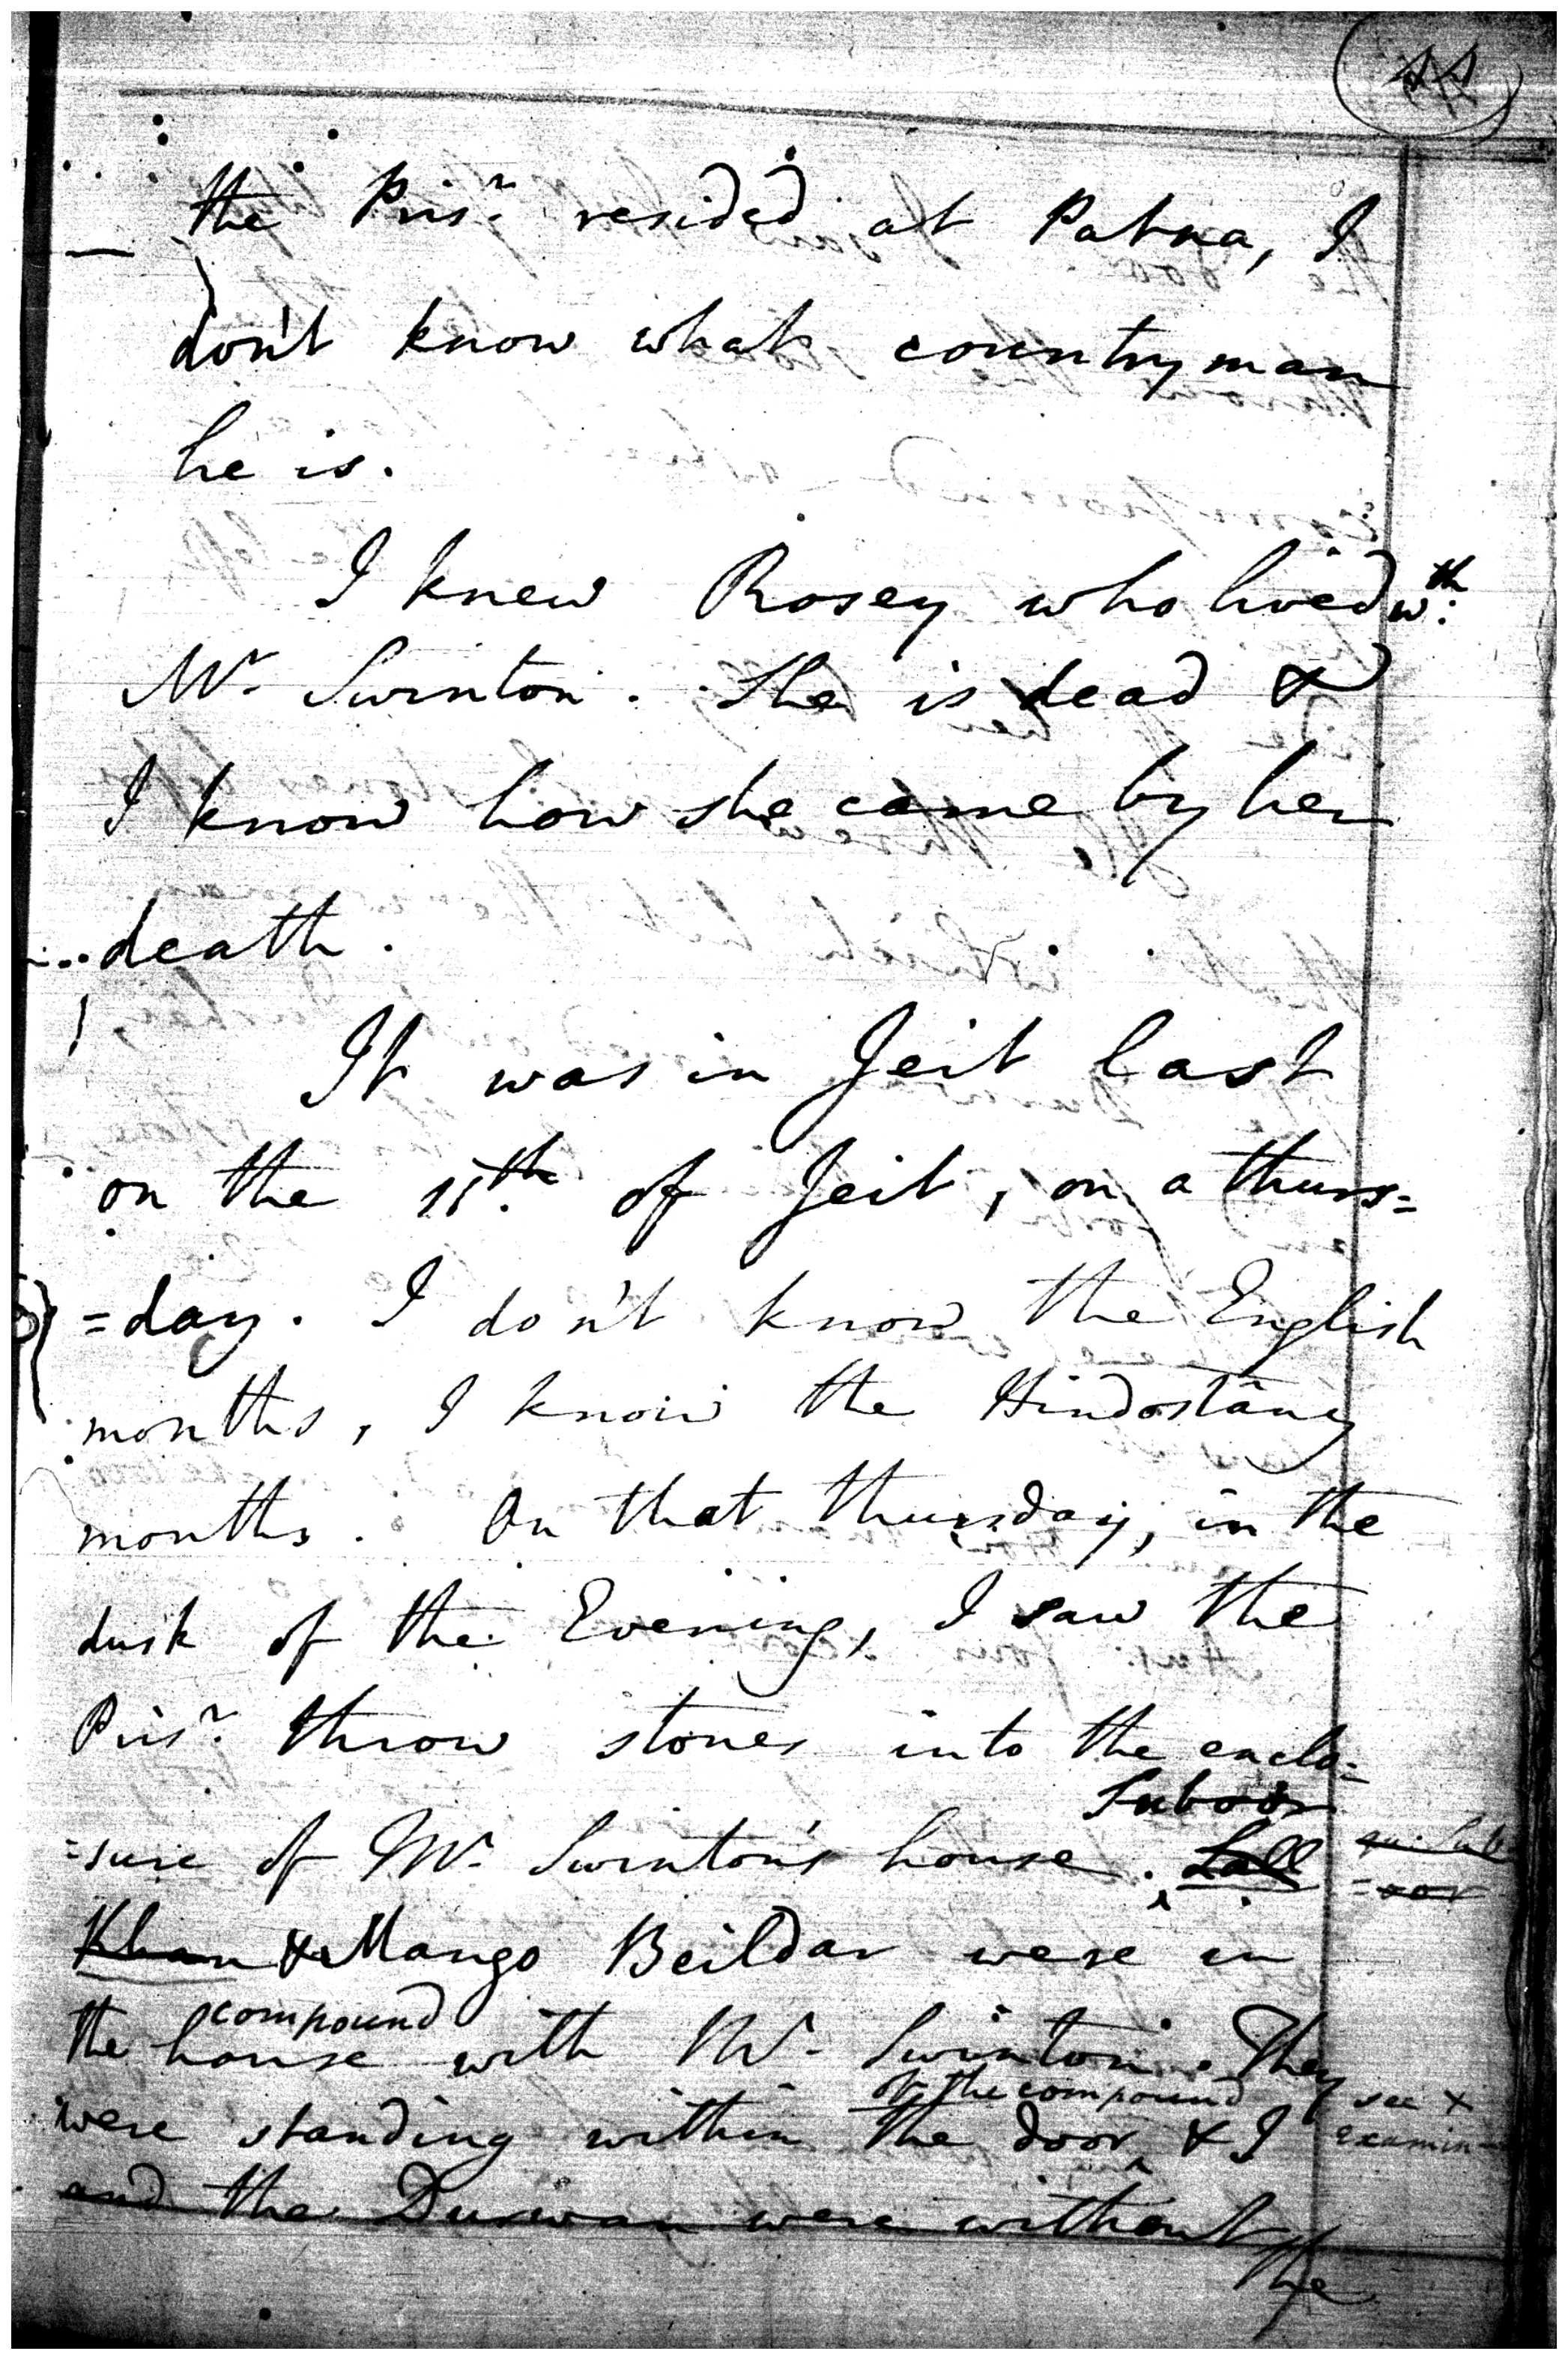 44
the Pris.r resided at Patna, I
don't know what countryman
he is.
I knew Rosey who lived w.th
Mr. Swinton. She is dead &
I know how she came by her
death.
It was in Jeit last
on the 15.th of Jeit, on a thurs=
=day. I don't know the English
months, I know the Hindostany
months. On that thursday, in the
dusk of the Evening, I saw the
Pris.r throw stones into the enclo=
Suboor
=sure of Mr. Swinton's house. Lall
Khan & Mango Beildar were in
compound
the house with Mr. Swinton. They
of the compound
were standing within the door & I
see x
examin
and the Durwan were without
the